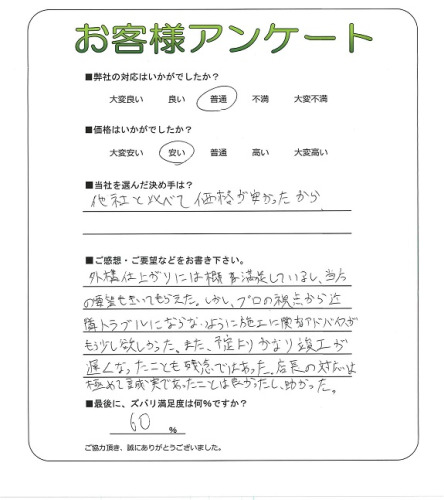 お客様アンケート
■弊社の対応はいかがでしたか?
大変良い 良い 普通 不満 大変不満
■価格はいかがでしたか?
大変安い 安い 普通 高い 大変高い
■当社を選んだ決め手は?
他社と比べて価格が安かったから
■ご感想・ご要望などをお書き下さい。
外構仕上がりには概ね満足しているし、当方
の要望も聞いてもらえた。しかし、プロの視点から近
隣トラブルにならないように施工に関するアドバイスが
もう少し欲しかった。また、予定よりかなり竣工が
遅くなったことも残念ではあった。店長の対応は
極めて誠実であったことは良かったし、助かった。
■最後に、ズバリ満足度は何%ですか?
60 %
ご協力頂き、誠にありがとうございました。